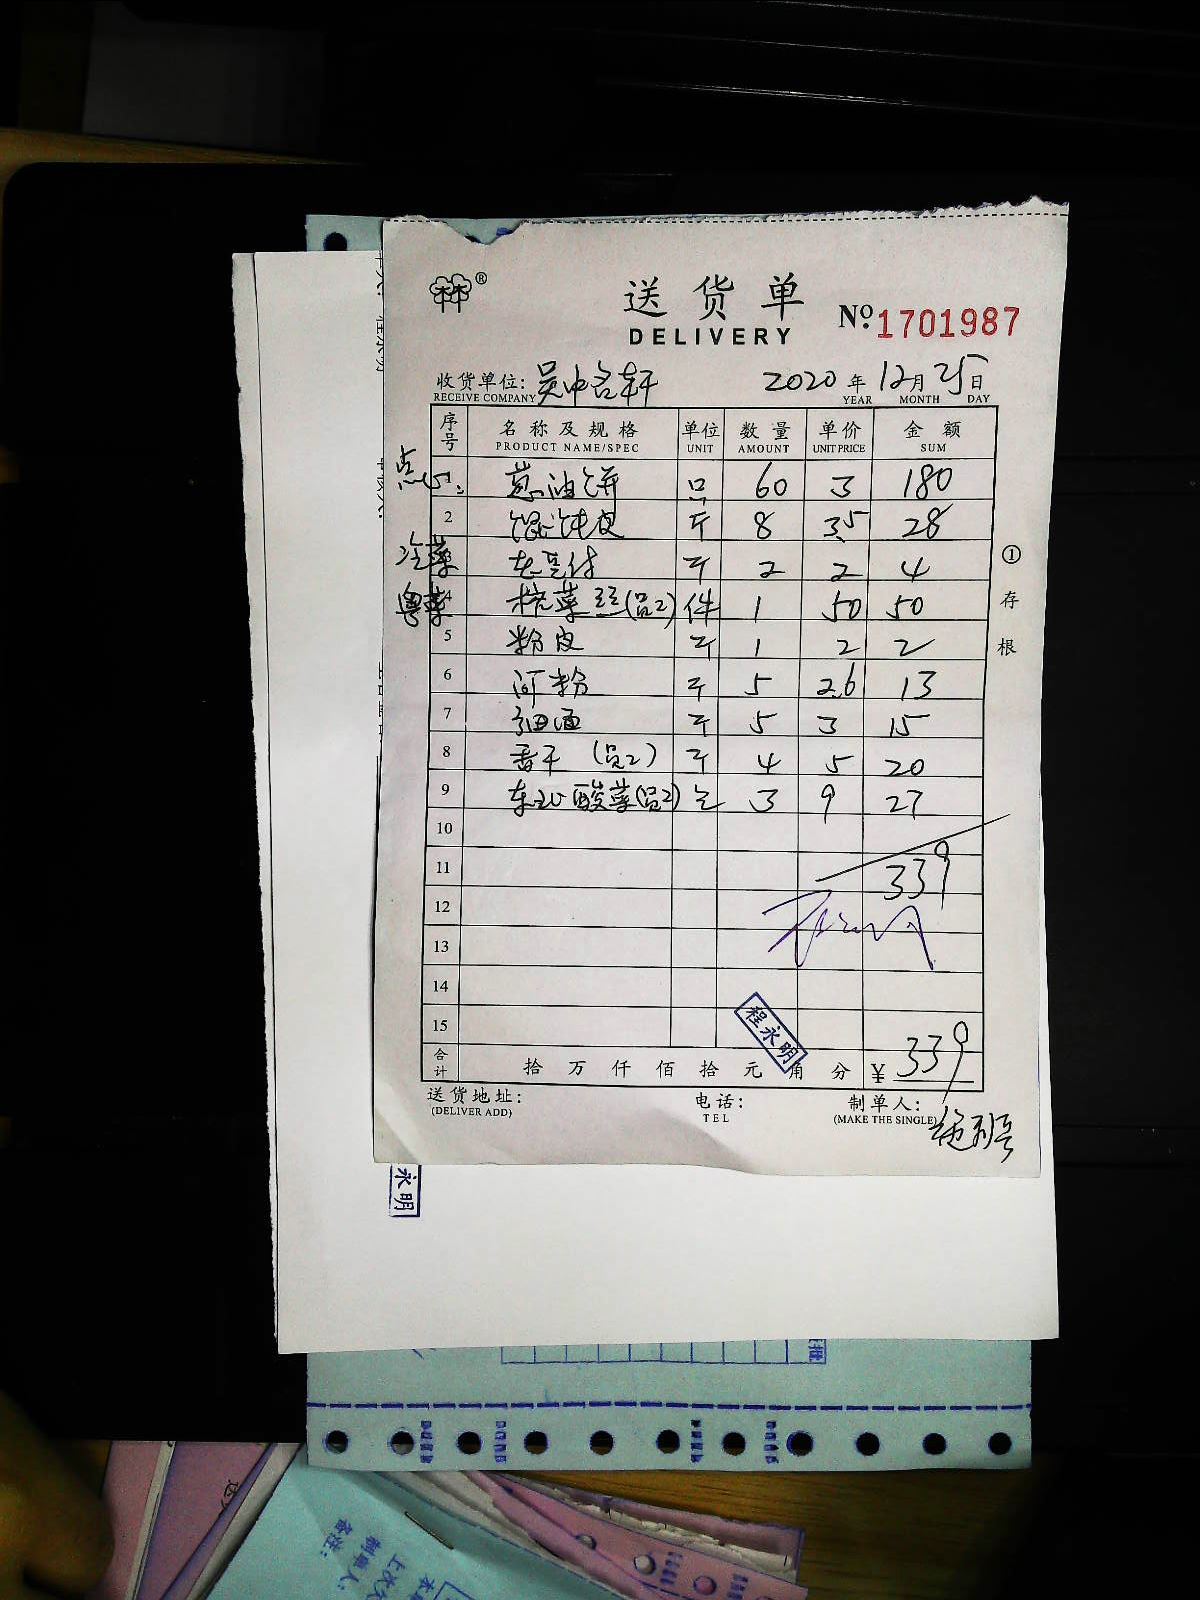 ®
送货单
DELIVERY
No.1701987
收货单位: 吴中名轩 2020年12月25日
RECEIVE COMPANY YEAR MONTH DAY
序号 名称及规格 单位 数量 单价 金额
PRODUCT NAME/SPEC UNIT AMOUNT UNIT PRICE SUM
点心: 1 葱油饼 只 60 3 180
2 馄饨皮 斤 8 3.5 28
冷菜 3 斤 2 2 4
粤菜 4 榨菜丝(员2) 件 1 50 50
5 粉皮 斤 1 2 2
6 河粉 斤 5 2.6 13
7 细面 斤 5 3 15
8 香干 (员2) 斤 4 5 20
9 东北酸菜(员2) 3 9 27
10
11 339
12
13
14
15
程永明
合计 拾 万 仟 佰 拾 元 角 分 ¥ 339
送货地址: 电话: 制单人:
(DELIVER ADD) TEL (MAKE THE SINGLE)
①存根
永明
制单人:
备注: